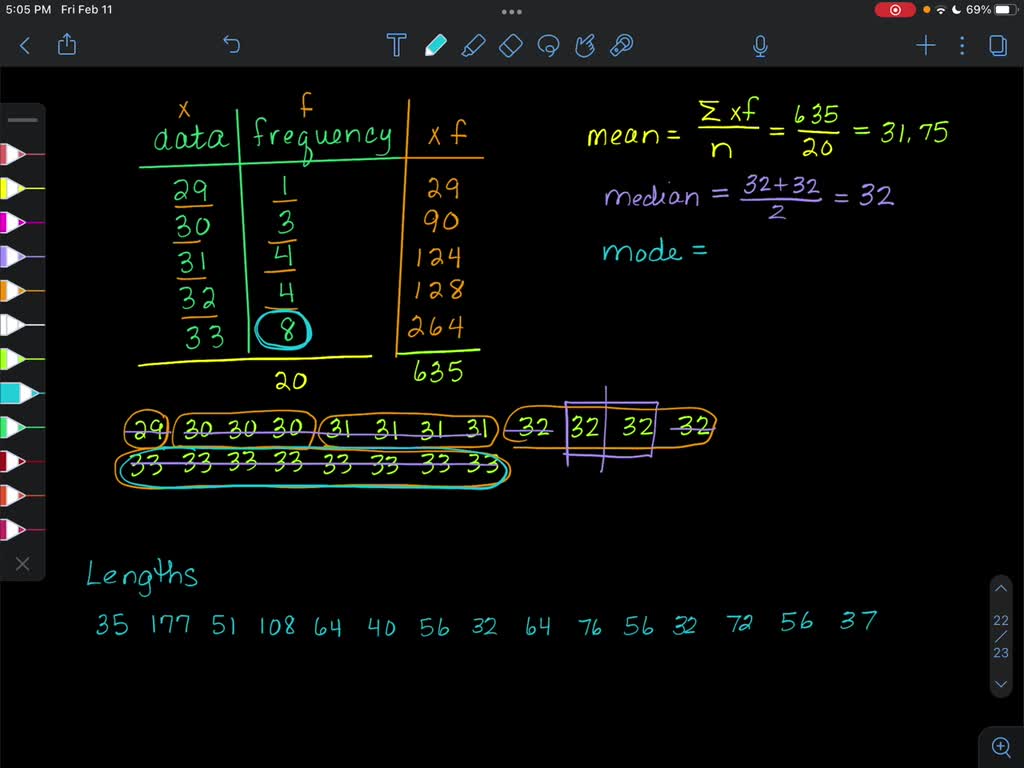 5:05 PM Fri Feb 11
69%
T
x f
data frequency x f
29 1 29
30 3 90
31 4 124
32 4 128
33 8 264
20 635
mean = Σxf/n = 635/20 = 31.75
median = 32+32/2 = 32
mode =
29 30 30 30 31 31 31 31 32 32 32 32
33 33 33 33 33 33 33 33
Lengths
35 177 51 108 64 40 56 32 64 76 56 32 72 56 37
22
/
23